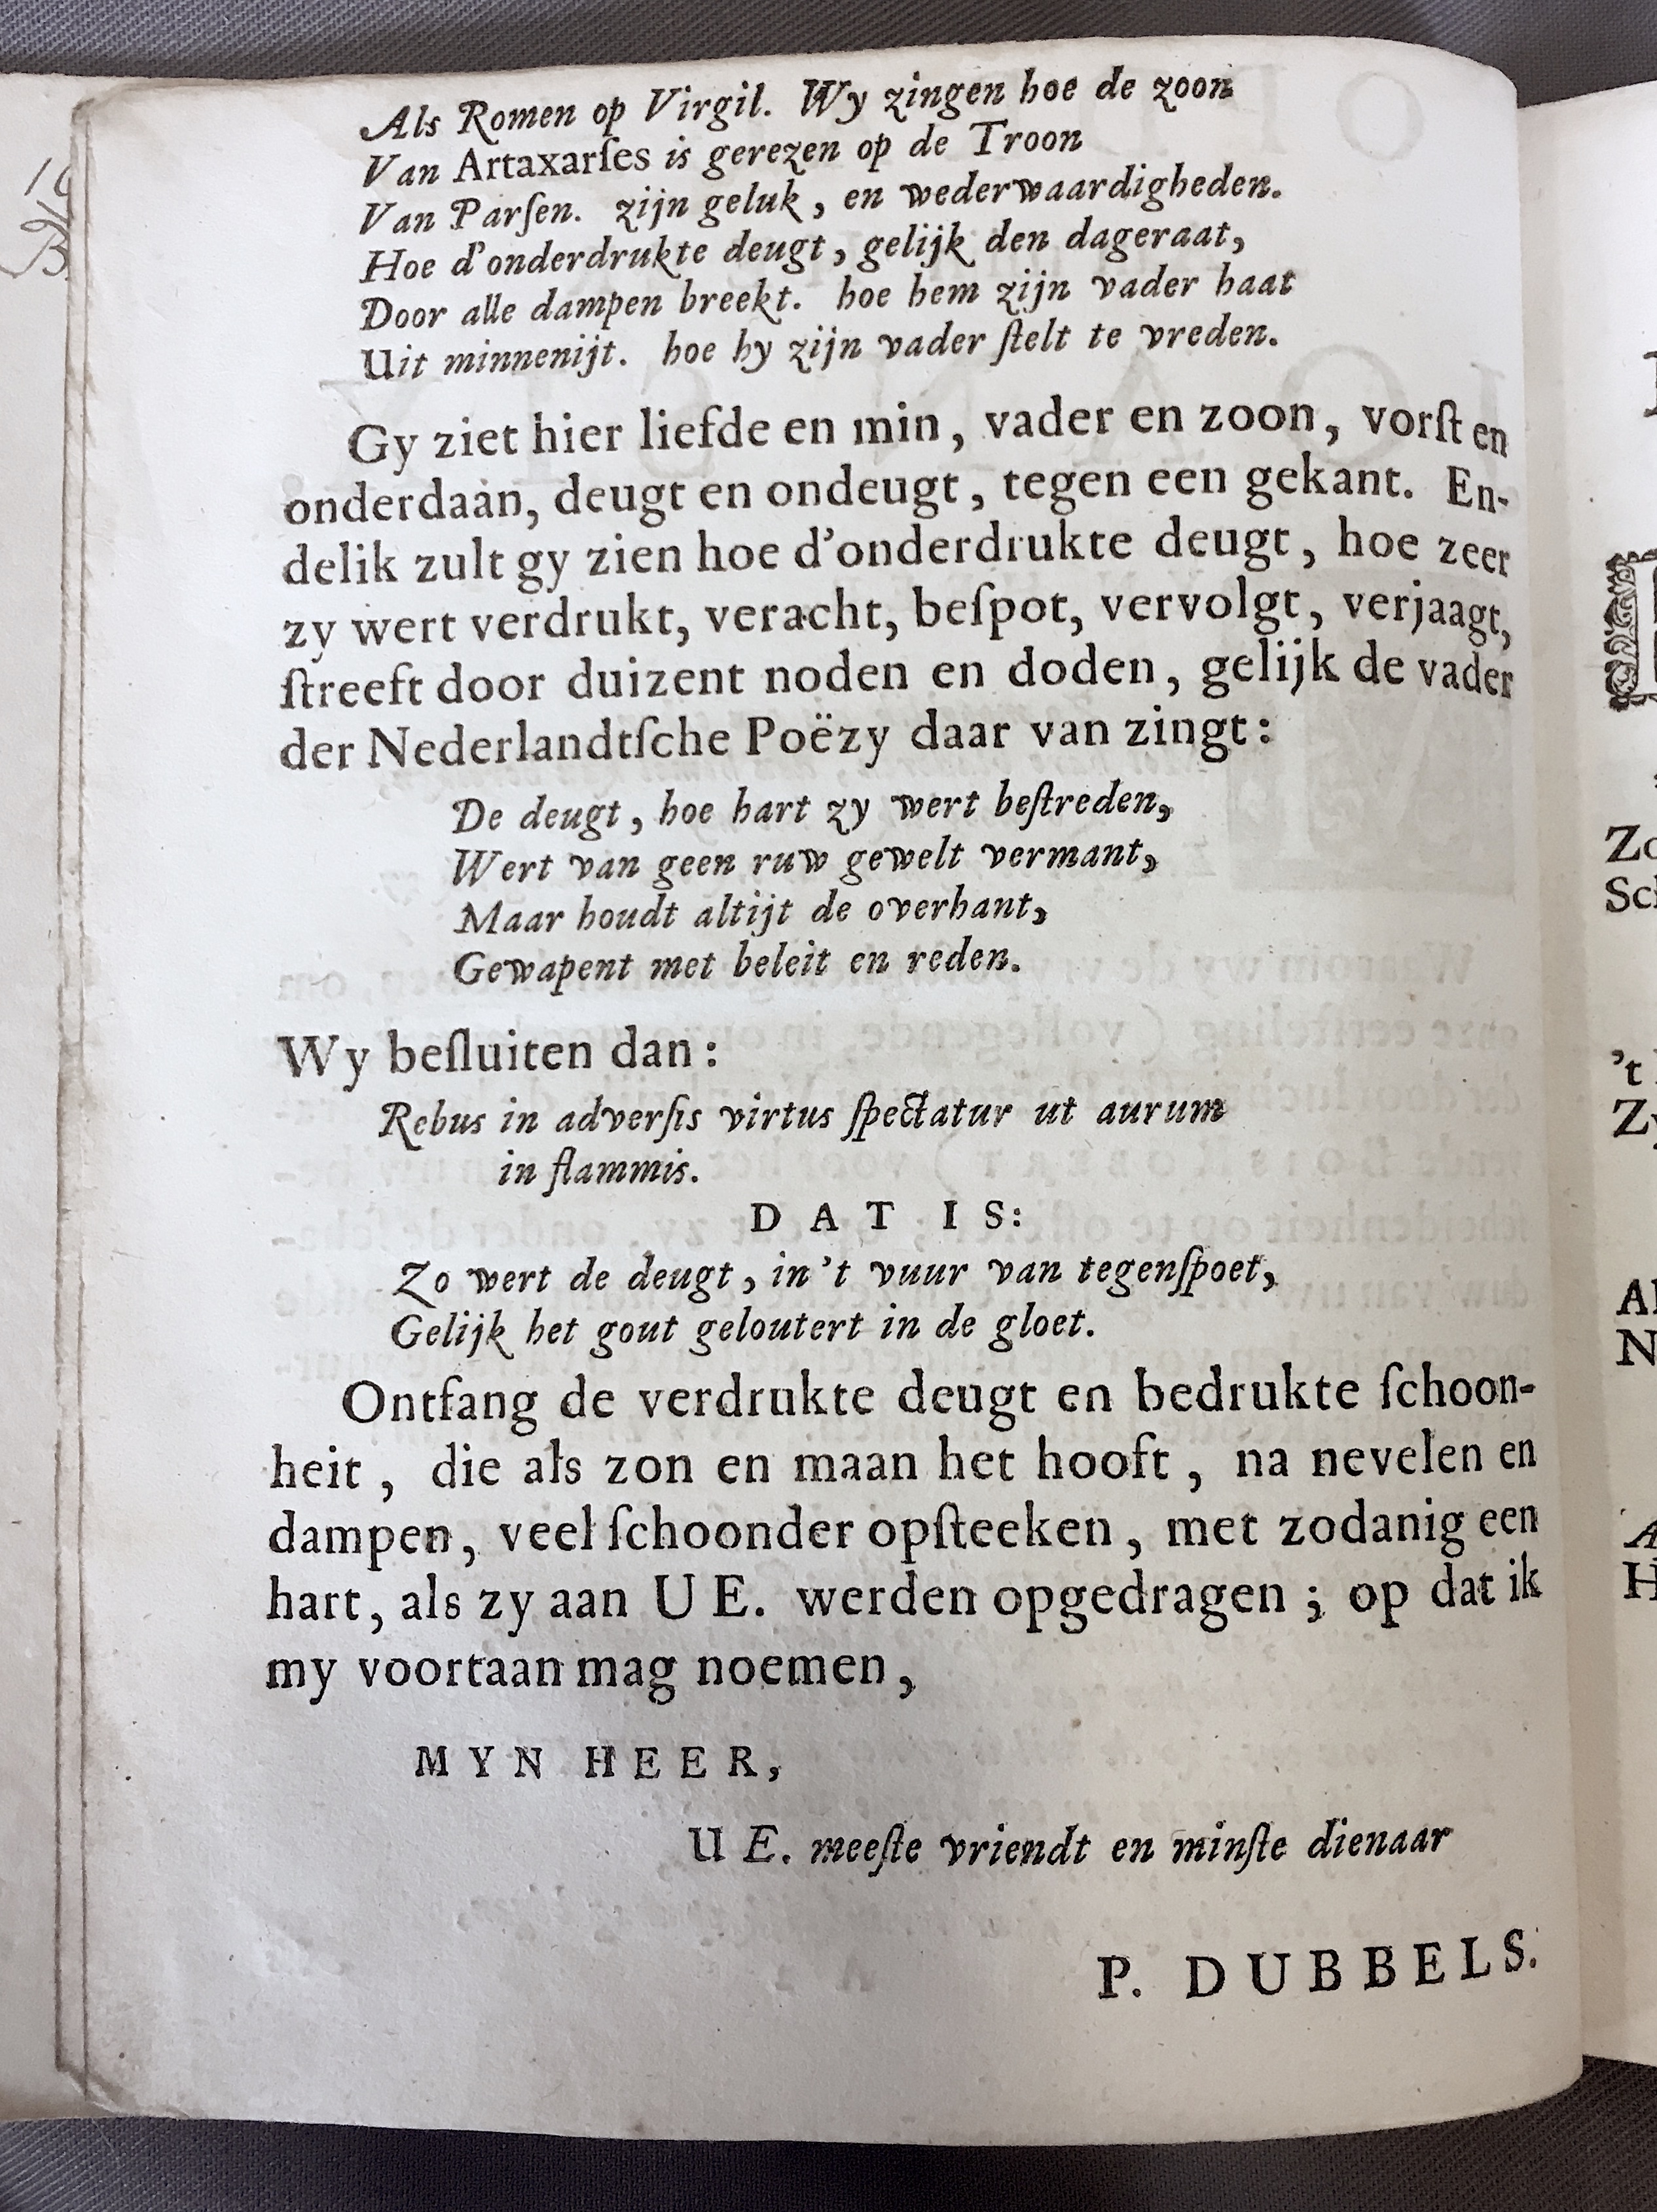 Als Romen op Virgil. Wy zingen hoe de zoon
Van Artaxarſes is gerezen op de Troon
Van Parſen. zijn geluk, en wederwaardigheden.
Hoe d'onderdrukte deugt, gelijk den dageraat,
Door alle dampen breekt. hoe hem zijn vader haat
Uit minnenijt. hoe hy zijn vader ſtelt te vreden.
Gy ziet hier liefde en min, vader en zoon, vorſt en
onderdaan, deugt en ondeugt, tegen een gekant. En-
delik zult gy zien hoe d'onderdrukte deugt, hoe zeer
zy wert verdrukt, veracht, beſpot, vervolgt, verjaagt,
ſtreeft door duizent noden en doden, gelijk de vader
der Nederlandtſche Poëzy daar van zingt:
De deugt, hoe hart zy wert beſtreden,
Wert van geen ruw gewelt vermant,
Maar houdt altijt de overhant,
Gewapent met beleit en reden.
Wy beſluiten dan:
Rebus in adverſis virtus ſpectatur ut aurum
in flammis.
DAT IS:
Zo wert de deugt, in't vuur van tegenſpoet,
Gelijk het gout geloutert in de gloet.
Ontfang de verdrukte deugt en bedrukte ſchoon-
heit, die als zon en maan het hooft, na nevelen en
dampen, veel ſchoonder opſteeken, met zodanig een
hart, als zy aan U E. werden opgedragen; op dat ik
my voortaan mag noemen,
MYN HEER,
U E. meeſte vriendt en minſte dienaar
P. DUBBELS.
Zo
Sc
't
Zy
Al
N
A
H